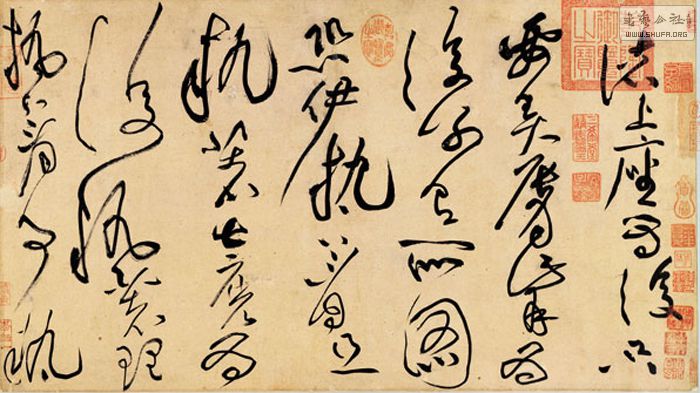 諸上座為復只
要弄脣觜為
復別有所圖
恐伊執著且
執著甚麼為
復執著理
執著事執
書藝公社
WWW.SHUFA.ORG